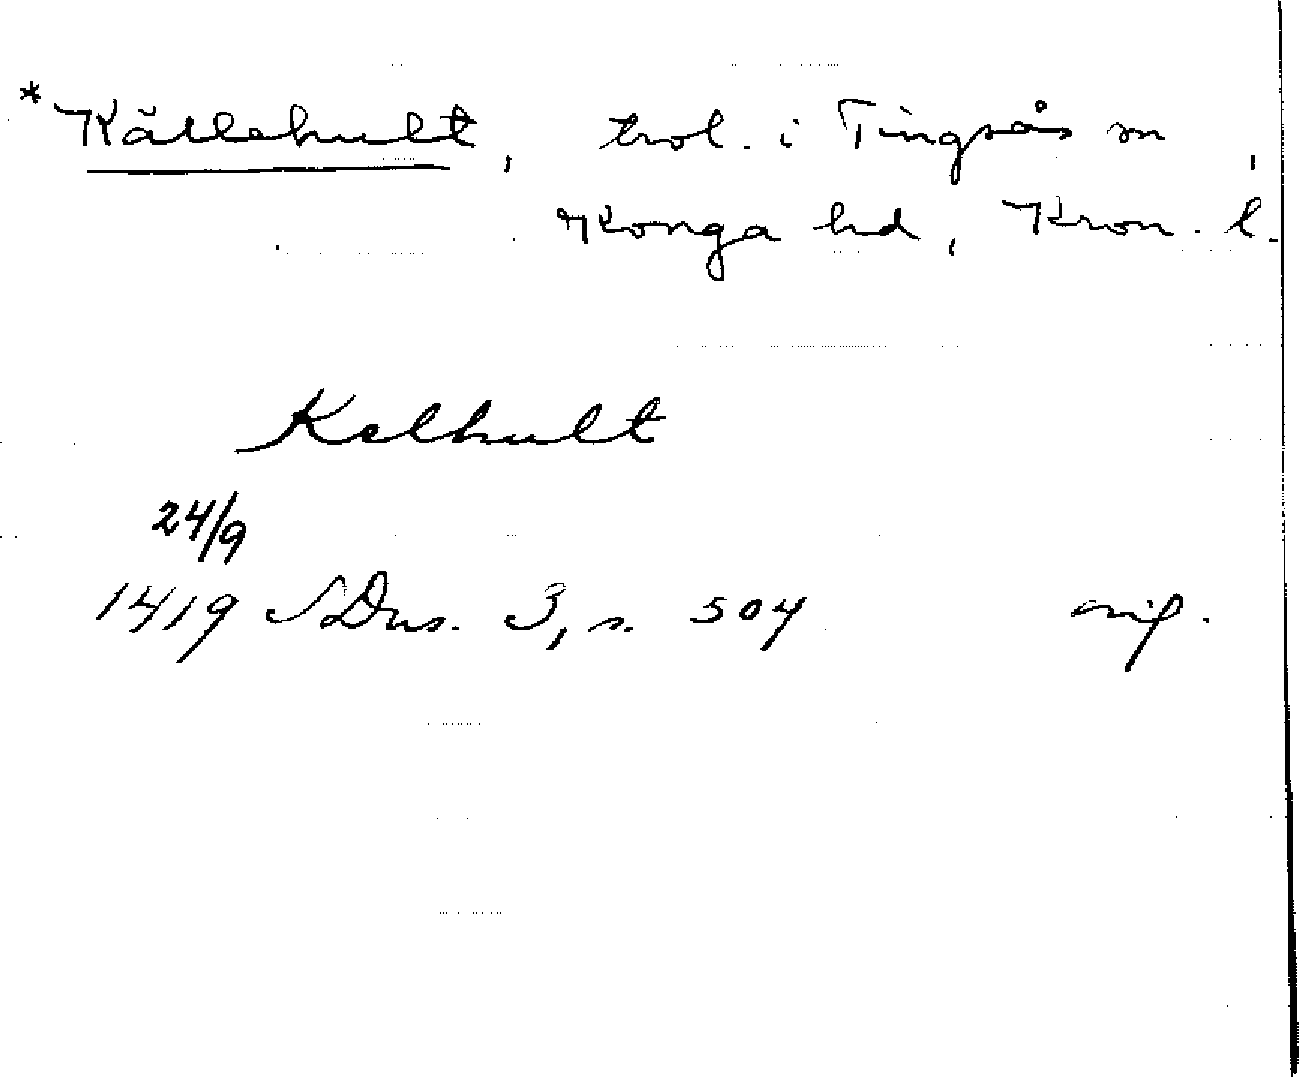 * Källehult, trol. i Tingsås sn,
Konga hd, Kron. l.
Kelhult
24/9
1419 SDns. 3, s. 504